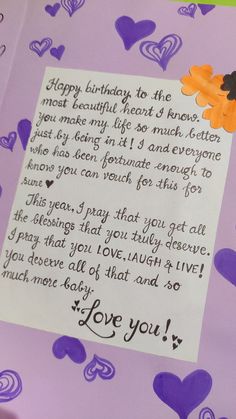 Happy birthday to the
most beautiful heart I know.
you make my life so much better
just by being in it! I and everyone
who has been fortunate enough to
know you can vouch for this for
sure ♥
This year, I pray that you get all
the blessings that you truly deserve.
I pray that you LOVE, LAUGH & LIVE!
you deserve all of that and so
much more baby.
Love you!